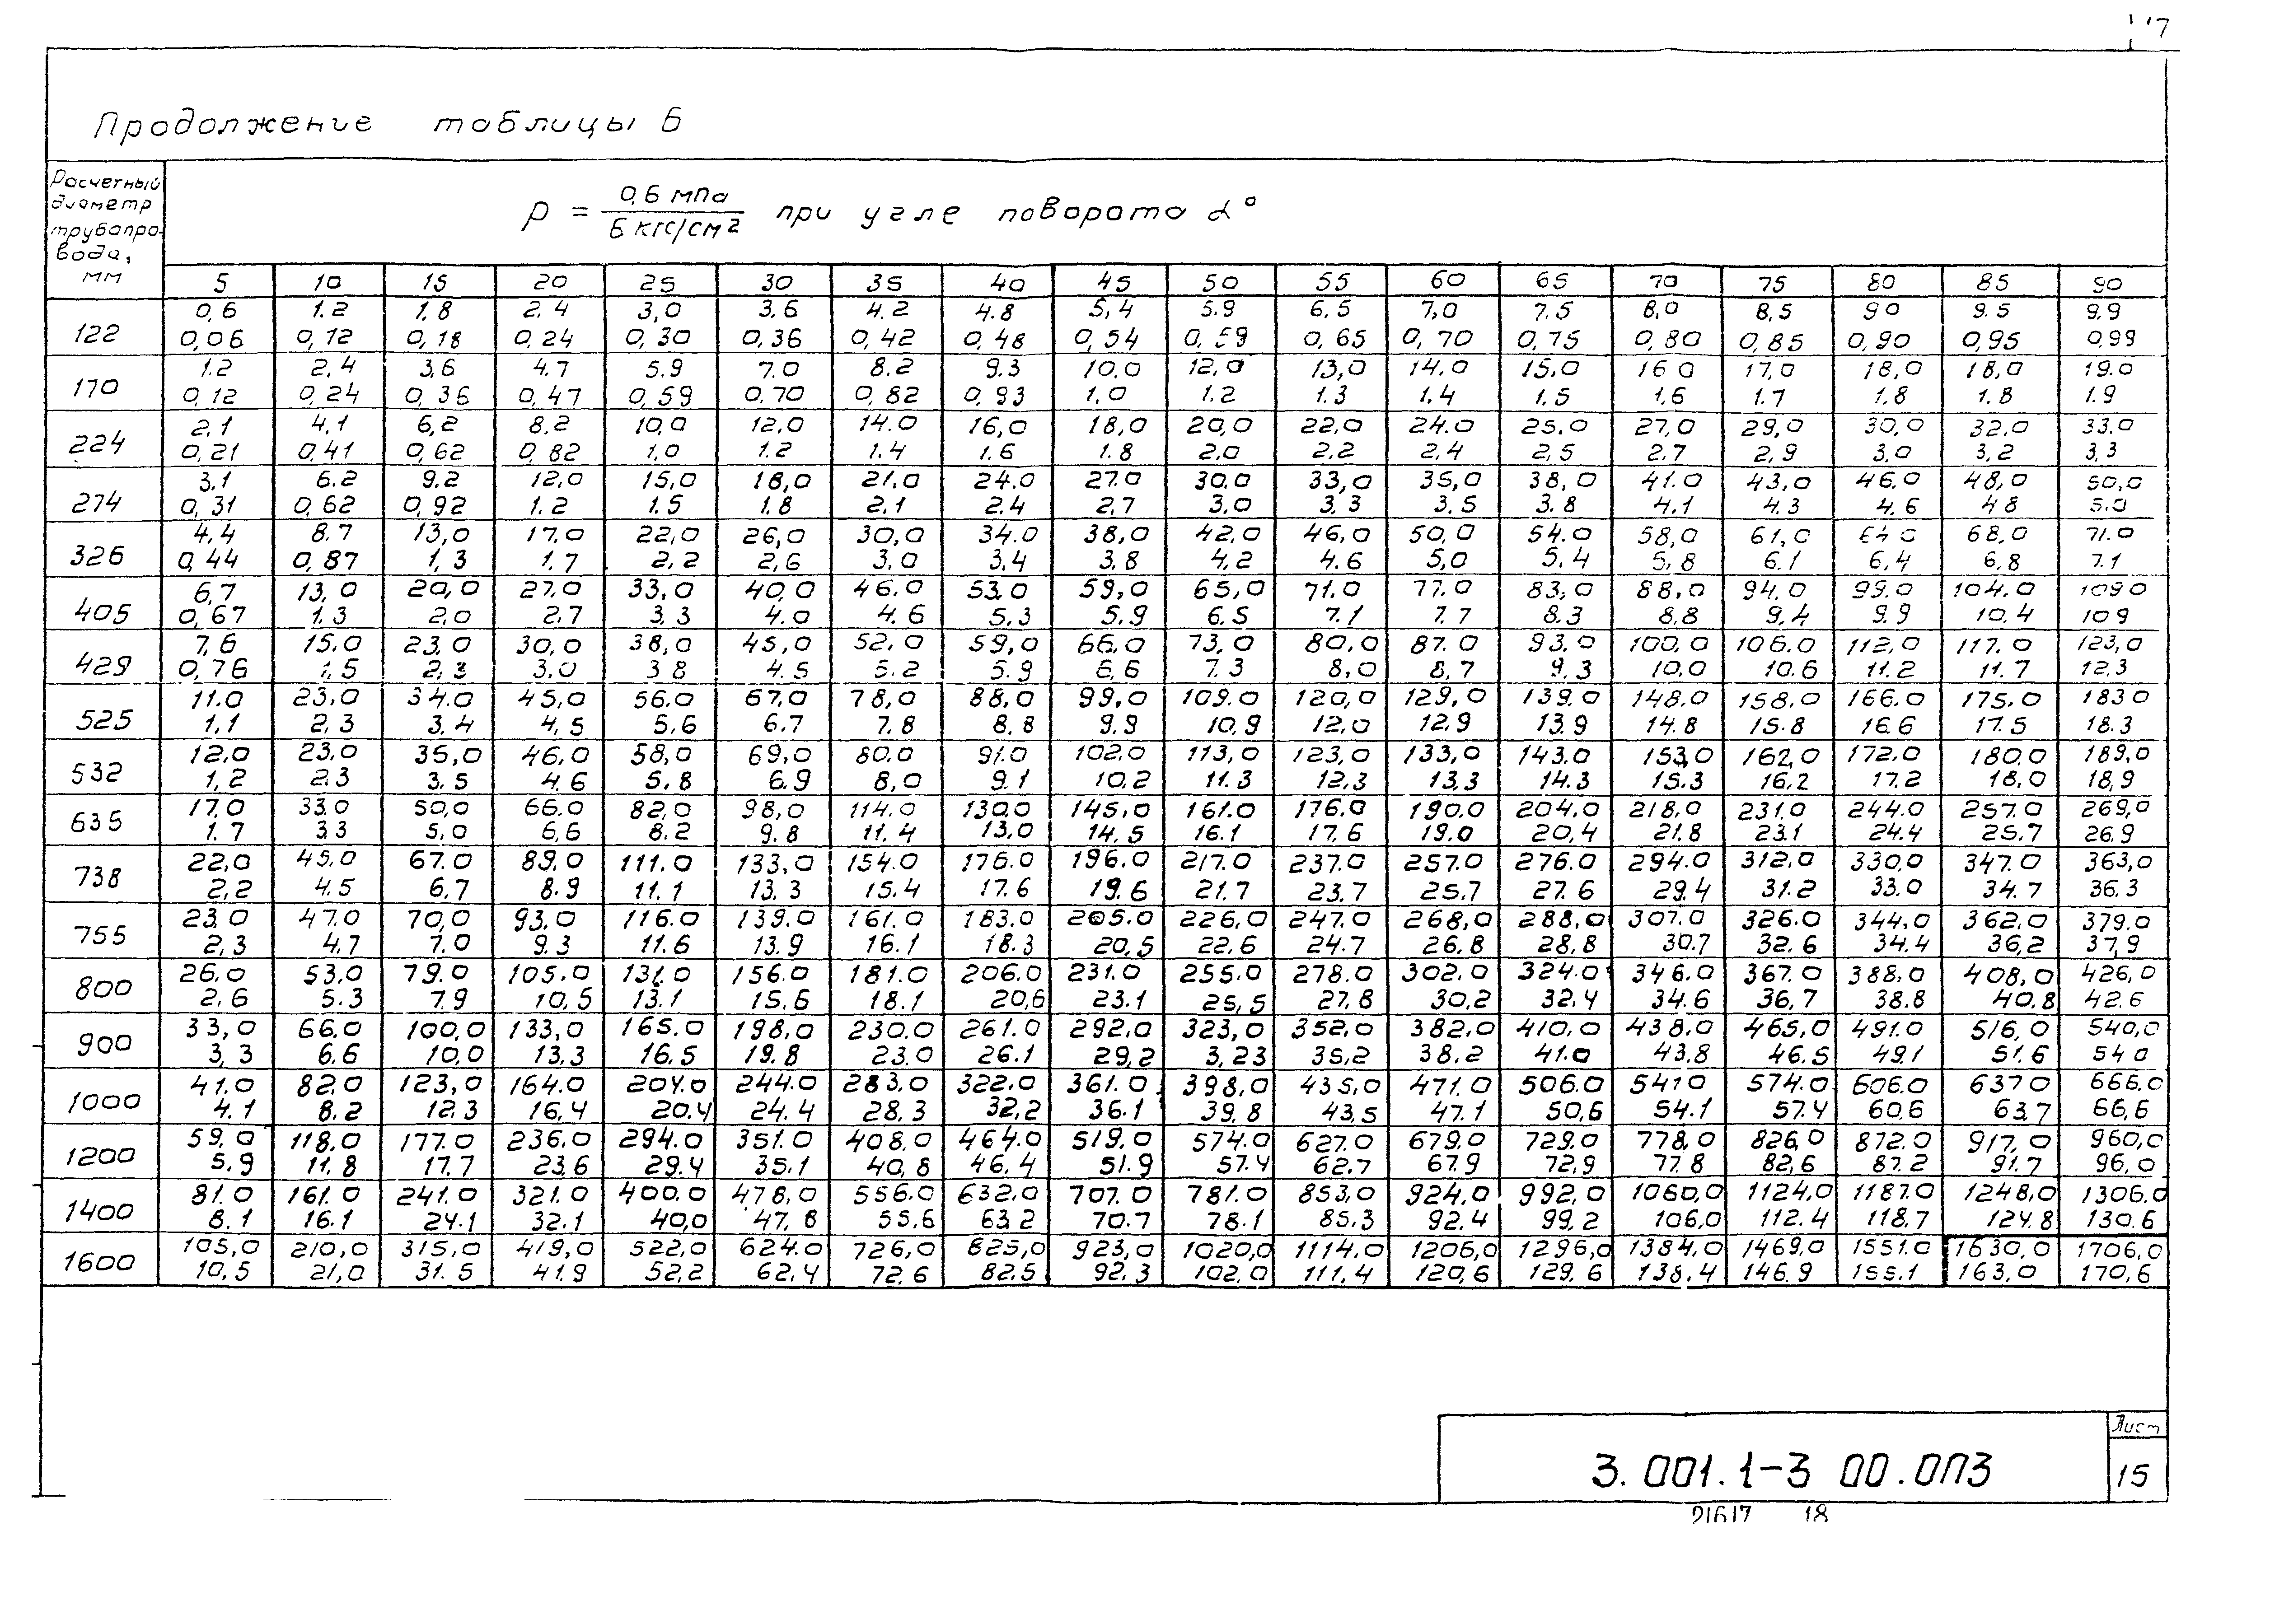 17
Продолжение таблицы 6
Расчетный
диаметр
трубопро-
вода,
мм
р = 0,6 мпа / 6 кгс/см² при угле поворота α°
5 10 15 20 25 30 35 40 45 50 55 60 65 70 75 80 85 90
0,6 1.2 1,8 2,4 3,0 3,6 4.2 4.8 5,4 5.9 6,5 7,0 7.5 8,0 8,5 90 9.5 9.9
122
0,06 0,12 0,18 0,24 0,30 0,36 0,42 0,48 0,54 0,59 0,65 0,70 0,75 0,80 0,85 0,90 0,95 0,99
1.2 2,4 3,6 4,7 5.9 7.0 8.2 9.3 10,0 12,0 13,0 14.0 15.0 16 0 17,0 18,0 18,0 19.0
170
0,12 0,24 0,36 0,47 0,59 0,70 0,82 0,93 1.0 1.2 1.3 1,4 1.5 1,6 1.7 1.8 1.8 1.9
2,1 4,1 6,2 8.2 10,0 12,0 14.0 16,0 18,0 20,0 22,0 24.0 25.0 27,0 29,0 30,0 32,0 33.0
224
0,21 0,41 0,62 0,82 1,0 1.2 1.4 1.6 1.8 2,0 2,2 2,4 2,5 2.7 2,9 3,0 3,2 3,3
3,1 6.2 9.2 12,0 15,0 18,0 21.0 24.0 27.0 30.0 33,0 35,0 38,0 41.0 43,0 46,0 48,0 50,0
274
0,31 0,62 0,92 1.2 1.5 1.8 2.1 2.4 2,7 3,0 3,3 3,5 3.8 4.1 4.3 4.6 4 8 5.0
4,4 8.7 13,0 17,0 22,0 26,0 30,0 34.0 38,0 42,0 46,0 50,0 54.0 58,0 61,0 68,0 71.0
326
0,44 0,87 1,3 1.7 2,2 2,6 3,0 3,4 3,8 4,2 4.6 5,0 5,4 5,8 6.1 6,4 6,8 7.1
6,7 13,0 20,0 27.0 33,0 40,0 46.0 53,0 59,0 65,0 71.0 77.0 83,0 88,0 94.0 99.0 104.0 109 0
405
0,67 1.3 2,0 2.7 3.3 4.0 4.6 5.3 5.9 6.5 7.1 7.7 8.3 8,8 9,4 9.9 10,4 10 9
7,6 15.0 23,0 30,0 38,0 45,0 52,0 59,0 66,0 73,0 80,0 87.0 93.0 100,0 106.0 112,0 117.0 123,0
429
0,76 1,5 2,3 3.0 3 8 4.5 5.2 5.9 6,6 7.3 8,0 8,7 9,3 10,0 10.6 11.2 11.7 12,3
11.0 23,0 34.0 45,0 56.0 67.0 78,0 88,0 99,0 109.0 120,0 129,0 139.0 148,0 158,0 166.0 175.0 183 0
525
1,1 2,3 3,4 4,5 5,6 6.7 7,8 8.8 9.9 10,9 12,0 12.9 13.9 14.8 15.8 16.6 17.5 18.3
12,0 23,0 35,0 46,0 58,0 69,0 80,0 91.0 102,0 113,0 123,0 133,0 143.0 153,0 162,0 172.0 180.0 189,0
532
1,2 2,3 3.5 4.6 5.8 6.9 8,0 9.1 10,2 11.3 12,3 13,3 14.3 15.3 16.2 17.2 18,0 18,9
17.0 33.0 50,0 66.0 82,0 98,0 114.0 130.0 145,0 161.0 176.0 190.0 204.0 218,0 231.0 244.0 257.0 269,0
635
1.7 33 5,0 6,6 8.2 9.8 11.4 13,0 14,5 16.1 17,6 19.0 20,4 21.8 23.1 24.4 25.7 26.9
22,0 45,0 67.0 89,0 111.0 133,0 154.0 176.0 196.0 217.0 237.0 257.0 276.0 294.0 312.0 330,0 347.0 363,0
738
2,2 4.5 6.7 8.9 11.1 13.3 15.4 17.6 19.6 21.7 23.7 25.7 27.6 29.4 31.2 33.0 34.7 36.3
23,0 47.0 70,0 93,0 116.0 139.0 161.0 183.0 205.0 226,0 247.0 268,0 288,0 307.0 326.0 344,0 362,0 379.0
755
2,3 4.7 7.0 9.3 11.6 13.9 16.1 18.3 20,5 22,6 24.7 26.8 28,8 30.7 32.6 34.4 36,2 37,9
26.0 53,0 79.0 105.0 131.0 156.0 181.0 206.0 231.0 255.0 278.0 302,0 324.0 346.0 367.0 388,0 408,0 426,0
800
2.6 5.3 7.9 10,5 13.1 15.6 18.1 20,6 23.1 25,5 27.8 30,2 32,4 34.6 36,7 38.8 40.8 42.6
33,0 66,0 100,0 133,0 165.0 198,0 230.0 261.0 292,0 323,0 352,0 382,0 410,0 438,0 465,0 491.0 516,0 540,0
900
3,3 6.6 10,0 13.3 16.5 19.8 23.0 26.1 29,2 3,23 35,2 38.2 41.0 43,8 46.5 49,1 51.6 54 0
41.0 82,0 123,0 164.0 204.0 244.0 283.0 322.0 361.0 398,0 435,0 471.0 506.0 541 0 574.0 606.0 637 0 666.0
1000
4.1 8.2 12.3 16,4 20.4 24.4 28.3 32,2 36.1 39,8 43,5 47.1 50,6 54.1 57.4 60.6 63.7 66,6
59,0 118,0 177.0 236,0 294.0 351.0 408,0 464.0 519.0 574.0 627.0 679.0 729.0 778,0 826,0 872.0 917,0 960,0
1200
5.9 11.8 17.7 23,6 29.4 35.1 40,8 46.4 51.9 57.4 62.7 67.9 72,9 77.8 82,6 87.2 91.7 96,0
81.0 161.0 241.0 321.0 400.0 478,0 556.0 632,0 707.0 781.0 853,0 924.0 992,0 1060,0 1124,0 1187.0 1248,0 1306.0
1400
8.1 16.1 24.1 32.1 40,0 47.8 55.6 63.2 70.7 78.1 85.3 92.4 99,2 106,0 112.4 118.7 124.8 130.6
105,0 210,0 315,0 419,0 522,0 624.0 726,0 825,0 923,0 1020,0 1114.0 1206,0 1296,0 1384,0 1469,0 1551.0 1630,0 1706,0
1600
10,5 21,0 31.5 41.9 52,2 62,4 72.6 82.5 92.3 102.0 111.4 120,6 129.6 138.4 146.9 155.1 163,0 170,6
3.001.1-3 00.0ПЗ
Лист
15
21617 18